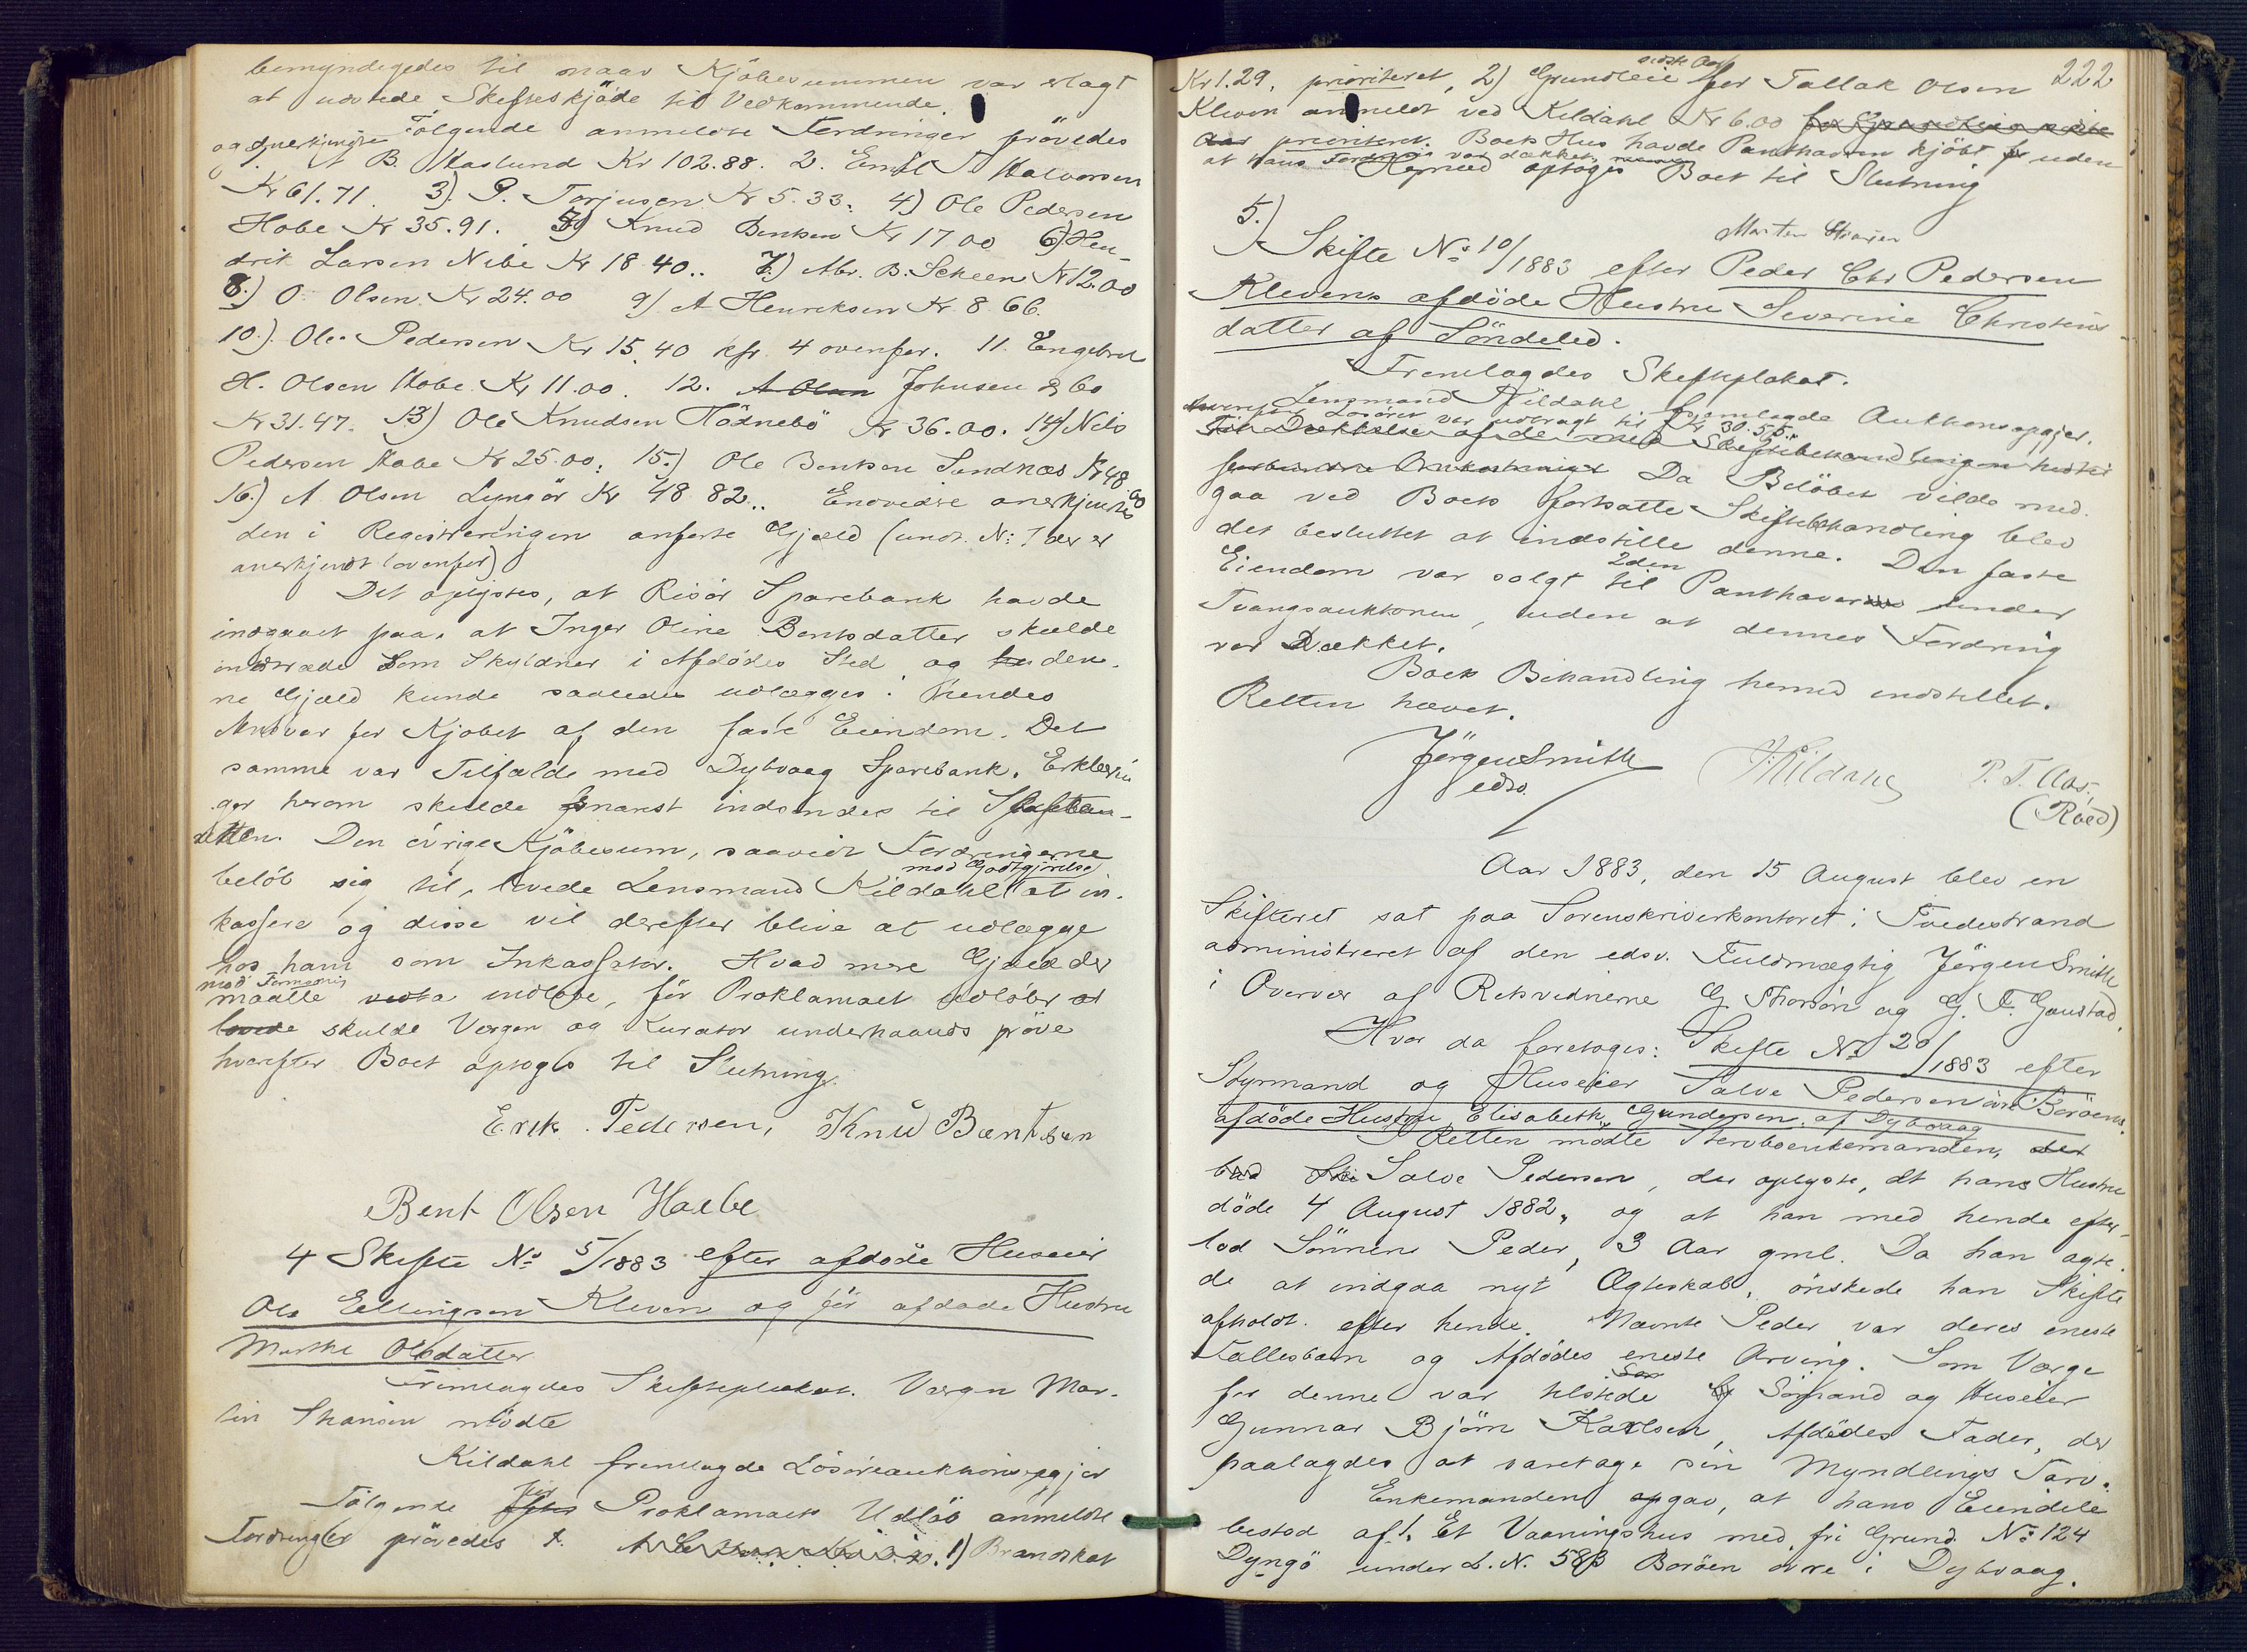 bemyndigedes til naar Kjöbesummen var erlagt
at udstede Skifteskjöde til Vedkommende.
Fölgende anmeldte Fordringer prövedes
og anerkjendtes
1 B. Haslund Kr 102.88. 2. Emil T Halvorsen
Kr 61.71. 3). P. Torjusen Kr 5.33. 4) Ole Pedersen
Hobe Kr 35.91. 5) Knud Bentsen Kr 17 00 6) Hen-
drik Larsen Nibe Kr 18 40.. 7.) Abr. B. Scheen Kr 12.00
8.) O. Olsen. Kr 24.00 9) A Henriksen Kr. 8 66.
10.). Ole Pedersen Kr 15.40 kfr. 4 ovenfor. 11. Engebret
H. Olsen Hobe Kr 11.00. 12. A Olsen Johnsen & Co
Kr 31.47. 13) Ole Knudsen Tödnebö Kr 36.00. 14) Nils
Pedersen Hobe Kr 25.00. 15.) Ole Bentsen Sundnæs Kr 48 60
16.) A Olsen Lyngör Kr 48 82.. Endvidre anerkjendtes
den i Registreringen anförte Gjæld (undt. No: 7 der er
anerkjendt ovenfor)
Det oplystes, at Risör Sparebank havde
indgaaet paa, at Inger Oline Bentsdatter skulde
indtræde som Skyldner i Afdödes Sted og den-
ne Gjæld kunde saaledes udlægges i hendes
Ansvar for Kjöbet af den faste Eiendom. Det
samme var Tilfælde med Dybvaag Sparebank. Erklærin
ger herom skulde snarest indsendes til Skifte-
retten. Den övrige Kjöbesum, saavidt Fordringerne
mod Godtgjörelse
belöb sig til, lovede Lensmand Kildahl at in-
kassere og disse vil derefter blive at udlægge
hos ham som Inkassator. Hvad mere Gjæld der
med Formodning
maatte indlöbe, för Proklamaet udlöber
lovede skulde Vergen og Kurator underhaands pröve
hvorefter Boet optoges til Slutning.
Erik Pedersen, Knud Bentsen
Bent Olsen Haabe
4 Skifte No 5/1883 efter afdöde Huseier
Ole Ellingsen Kleven og för afdöde Hustru
Marthe Olsdatter
Fremlagdes Skifteplakat. Vergen Mar-
tin Hansen mödte
Kildahl fremlagde Lösöreauktionsopgjör
för
Fölgende efter Proklamaets Udlöb anmeldte
Fordringer prövedes 1) Brandskat
222
sidste Aar
Kr 1.29, prioriteret, 2) Grundleie for Tallak Olsen
Kleven anmeldt ved Kildahl Kr 6.00
Aar prioriteret. Boets Hus havde Panthaveren kjöbt uden
at hans Fordring var dækket.
Hermed optoges Boet til Slutning
Morten Hansen
5.) Skifte No 10/1883 efter Peder Chr Pedersen
Klevens afdöde Hustru Severine Christens
datter af Söndeled.
Fremlagdes Skifteplakat.
Lensmand Kildahl fremlagde Auktionsopgjör.
hvorefter Lösöret var udbragt til Kr 30.55.
Til Dækkelse af de med Skiftebehandlingen hidtil
forbundne Omkostninger Da Belöbet vilde med-
gaa ved Boets fortsatte Skiftebehandling blev
det besluttet at indstille denne. Den faste
2den
Eiendom var solgt til Panthaver under
Tvangsauktionen, uden at dennes Fordring
var Dækket.
Boets Behandling hermed indstillet.
Retten hævet.
Jörgen Smith
edsv.
Kildahl
P. T. Aas.
(Röed)
Aar 1883, den 15 August blev en
Skifteret sat paa Sorenskriverkontoret i Tvedestrand
administreret af den edsv. Fuldmægtig Jörgen Smith
i Overvær af Retsvidnerne G. Thorsön og G. F. Gaustad.
Hvor da foretoges: Skifte No 20/1883 efter
Styrmand og Huseier Salve Pedersen övre Boröens
afdöde Hustru Elisabeth Gundersen af Dybvaag
I Retten mödte Stervboenkemanden,
Salve Pedersen, der oplyste, at hans Hustru
döde 4 August 1882, og at han med hende efter-
lod Sönnen Peder, 3 Aar gml. Da han agte-
de at indgaa nyt Ægteskab, önskede han Skifte
afholdt efter hende. Nævnte Peder var deres eneste
Fællesbarn og Afdödes eneste Arving. Som Værge
for denne var tilstede Sömand og Huseier
Gunnar Björn Karlsen, Afdödes Fader, der
paalagdes at varetage sin Myndlings Tarv.
Enkemanden opgav, at hans Eiendele
bestod af 1. Et Vaaningshus med fri Grund No 124
Dyngö under L. N. 58β Boröen övre i Dybvaag.